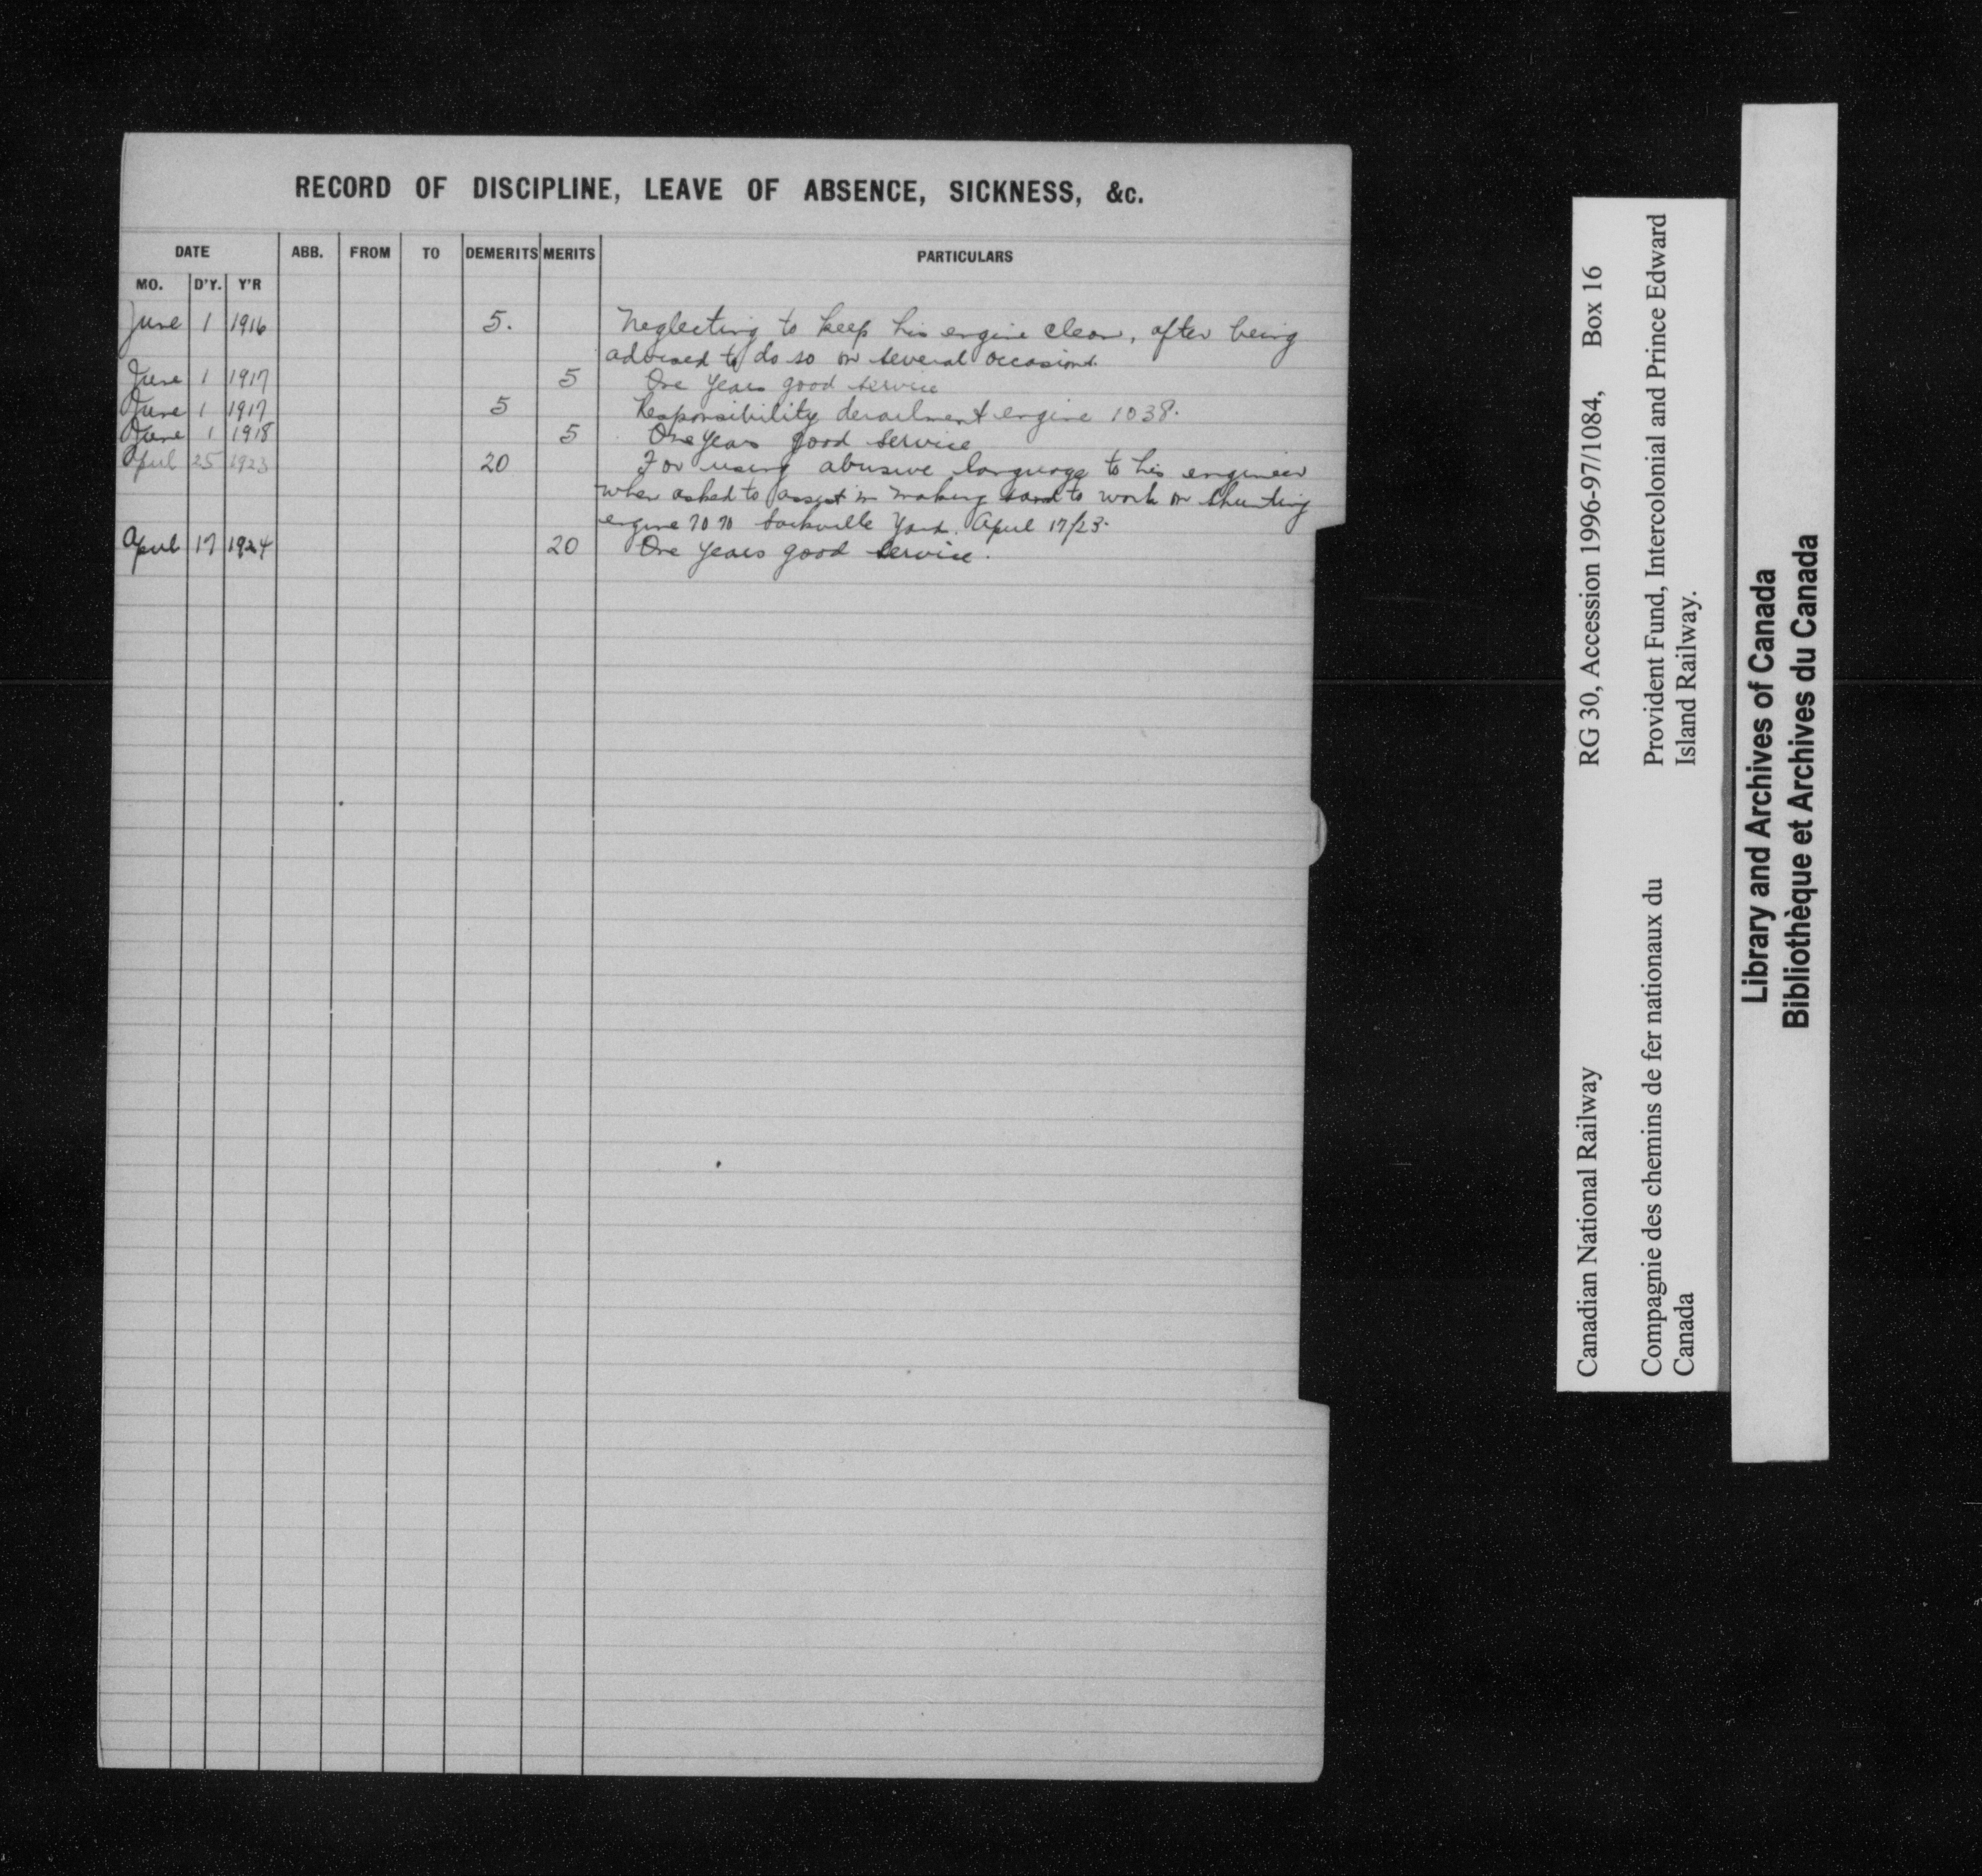 RECORD OF DISCIPLINE, LEAVE OF ABSENCE, SICKNESS, &c.
DATE ABB. FROM TO DEMERITS MERITS PARTICULARS
MO. D'Y. Y'R
June 1 1916 5. Neglecting to keep his engine clean, after being
advised to do so on several occasions.
June 1 1917 5 One years good service
June 1 1917 5 Responsibility derailment engine 1038.
June 1 1918 5 One years good service
April 25 1923 20 For using abusive language to his engineer
when asked to assist in making sand to work on shunting
engine 7070 Sackville Yard. April 17/23.
April 17 1924 20 One years good service.
Canadian National Railway RG 30, Accession 1996-97/1084, Box 16
Compagnie des chemins de fer nationaux du Provident Fund, Intercolonial and Prince Edward
Canada Island Railway.
Library and Archives of Canada
Bibliothèque et Archives du Canada